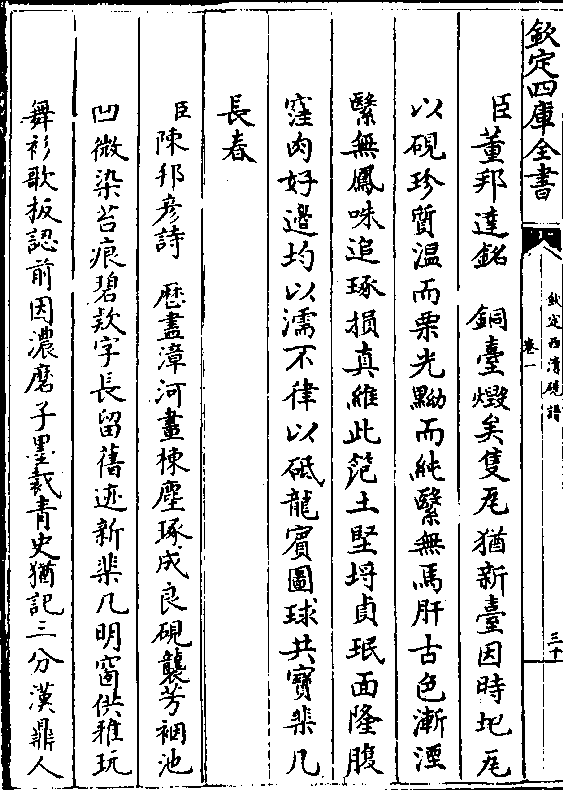 欽定四庫全書
欽定西清硯譜
卷一
三十
臣董邦達銘　銅臺燬矣隻瓦猶新臺因時圮瓦
以硯珍質温而栗光黝而純繄無馬肝古色漸湮
繄無鳳咮追琢損真維此笵土堅埒貞珉面隆腹
窪肉好邉均以濡不律以砥龍賓圖球共寳棐几
長春
臣陳邦彦詩　歴盡漳河畫棟塵琢成良硯襲芳裀池
凹微染苔痕碧欵字長留舊迹新棐几明窗供雅玩
舞衫歌板認前因濃磨子墨裁青史猶記三分漢鼎人